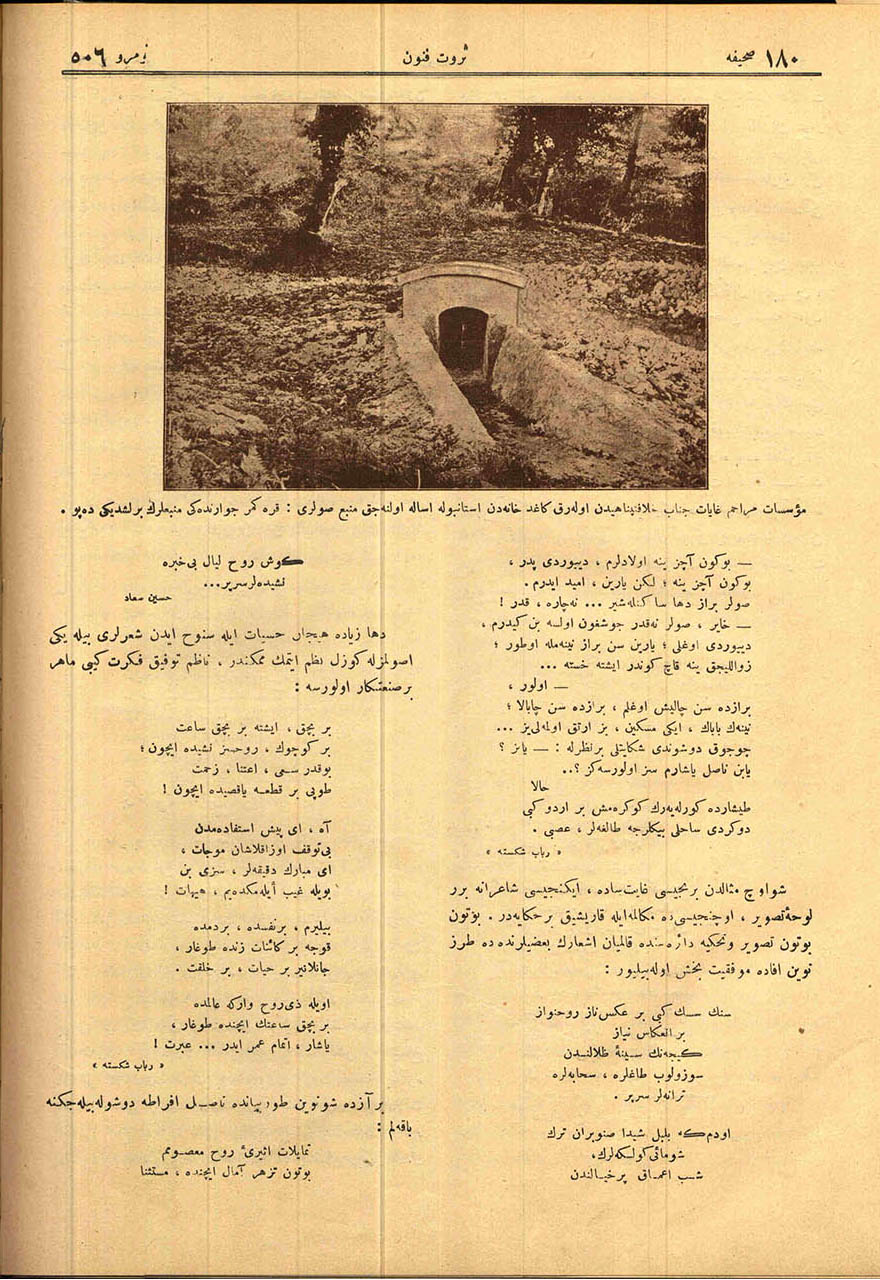 صحیفه ١٨٠
ثروت فنون
نومرو ٥٠٦
مؤسسات مراحم غایات جناب خلافتپناهیدن اوله‌رق کاغد خانه‌دن استانبوله اساله اولنه‌جق منبع صولری : قره کمر جوارنده‌کی منبعلرك برلشدیکی ده‌پو .
— بوکون آچز ینه اولادلرم ، دییوردی پدر ،
بوکون آچز ینه ؛ لکن یارین ، امید ایدرم .
صولر براز دها ساکنله‌شیر ... نه‌چاره ، قدر !
— خایر ، صولر نه‌قدر جوشغون اولسه بن کیدرم ،
دییوردی اوغلی ؛ یارین سن براز نینه‌مله اوطور ؛
زواللیجق ینه قاچ کوندر ایشته خسته ...
— اولور ،
برازده سن چالیش اوغلم ، برازده سن چابالا ؛
نینه‌ك باباك ، ایکی مسکین ، بز ارتق اولمه‌لی‌یز ...
چوجوق دوشوندی شکایتلی برنظرله : — یابز ؟
یابن ناصل یاشارم سز اولورسه‌کز ؟..
حالا
طیشارده کورله‌یه‌رك کوکره‌مش بر اردو کبی
دوکردی ساحلی بیکلرجه طالغه‌لر ، عصبی .
« رباب شکسته »
شو اوچ مثالدن برنجیسی غایت ساده ، ایکنجیسی شاعرانه برر
لوحهٔ تصویر ، اوچنجیسی‌ده مکالمه‌ایله قاریشیق برحکایه‌در . بوتون
بوتون تصویر وتحکیه دائره‌سنده قالمیان اشعارك بعضیلرنده‌ ده طرز
نوین افاده موفقیت بخش اوله‌بیلیور :
سنك سسك کبی بر عکس ناز روحنواز
بر انعکاس نیاز
کیجه‌نك سینهٔ ظلالندن
سوزولوب طاغلره ، سحابه‌لره
ترانه‌لر سرپر .
اودم‌که بلبل شیدا صنوبران ترك
شومائی کولکه‌لرك،
شب اعماق پرخیالندن
کوش روح لیال بی‌خبره
نشیده‌لر سرپر...
حسین سعاد
دها زیاده هیجان حسیات ایله سنوح ایدن شعرلری بیله یکی
اصولمزله کوزل نظم ایتمك ممکندر ، ناظم توفیق فکرت کبی ماهر
برصنعتکار اولورسه :
بر بچق ، ایشته بر بچق ساعت
بر کوچوك ، روحسز نشیده ایچون ؛
بوقدر سعی ، اعتنا ، زحمت
طوپی بر قطعه یاقصیده ایچون !
آه ، ای پیش استفاده‌مدن
بی‌توقف اوزاقلاشان موجات ،
ای مبارك دقیقه‌لر ، سزی بن
بویله غیب أیله‌مکده‌یم ، هیهات !
بیلیرم ، برنفسده ، بردمده
قوجه بر کائنات زنده طوغار ،
جانلانیر بر حیات ، بر خلقت .
اویله ذی‌روح وارکه عالمده
بر بچق ساعتك ایچنده طوغار ،
یاشار ، اتمام عمر ایدر ... عبرت !
« رباب شکسته »
برآزده شونوین طور بیانده ناصل افراطه دوشوله‌بیله‌جکنه
باقه‌لم :
تمایلات اثیریٔ روح معصومم
بوتون تزهر آمال ایچنده ، مستثنا